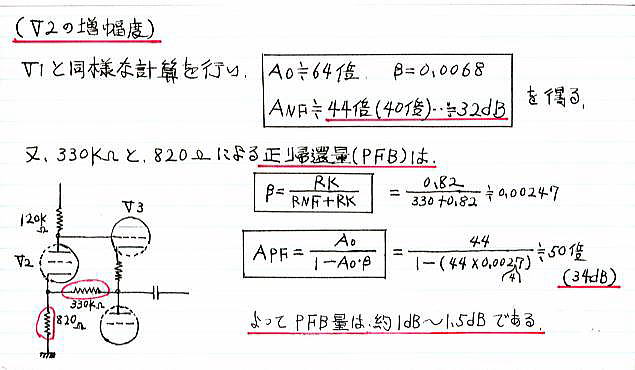 (V2の増幅度)
V1と同様な計算を行い、
A0≒64倍、 β=0.0068
ANF≒44倍(40倍)‥≒32dB
を得る。
又、330KΩと、820Ωによる正帰還量(PFB)は、
β= RK / RNF+RK = 0.82 / 330+0.82 ≒0.00247
APF= A0 / 1-A0・β = 44 / 1-(44×0.0027) ≒50倍
(4)
(34dB)
よってPFB量は、約1dB〜1.5dBである。
120KΩ
V3
V2
330KΩ
820Ω